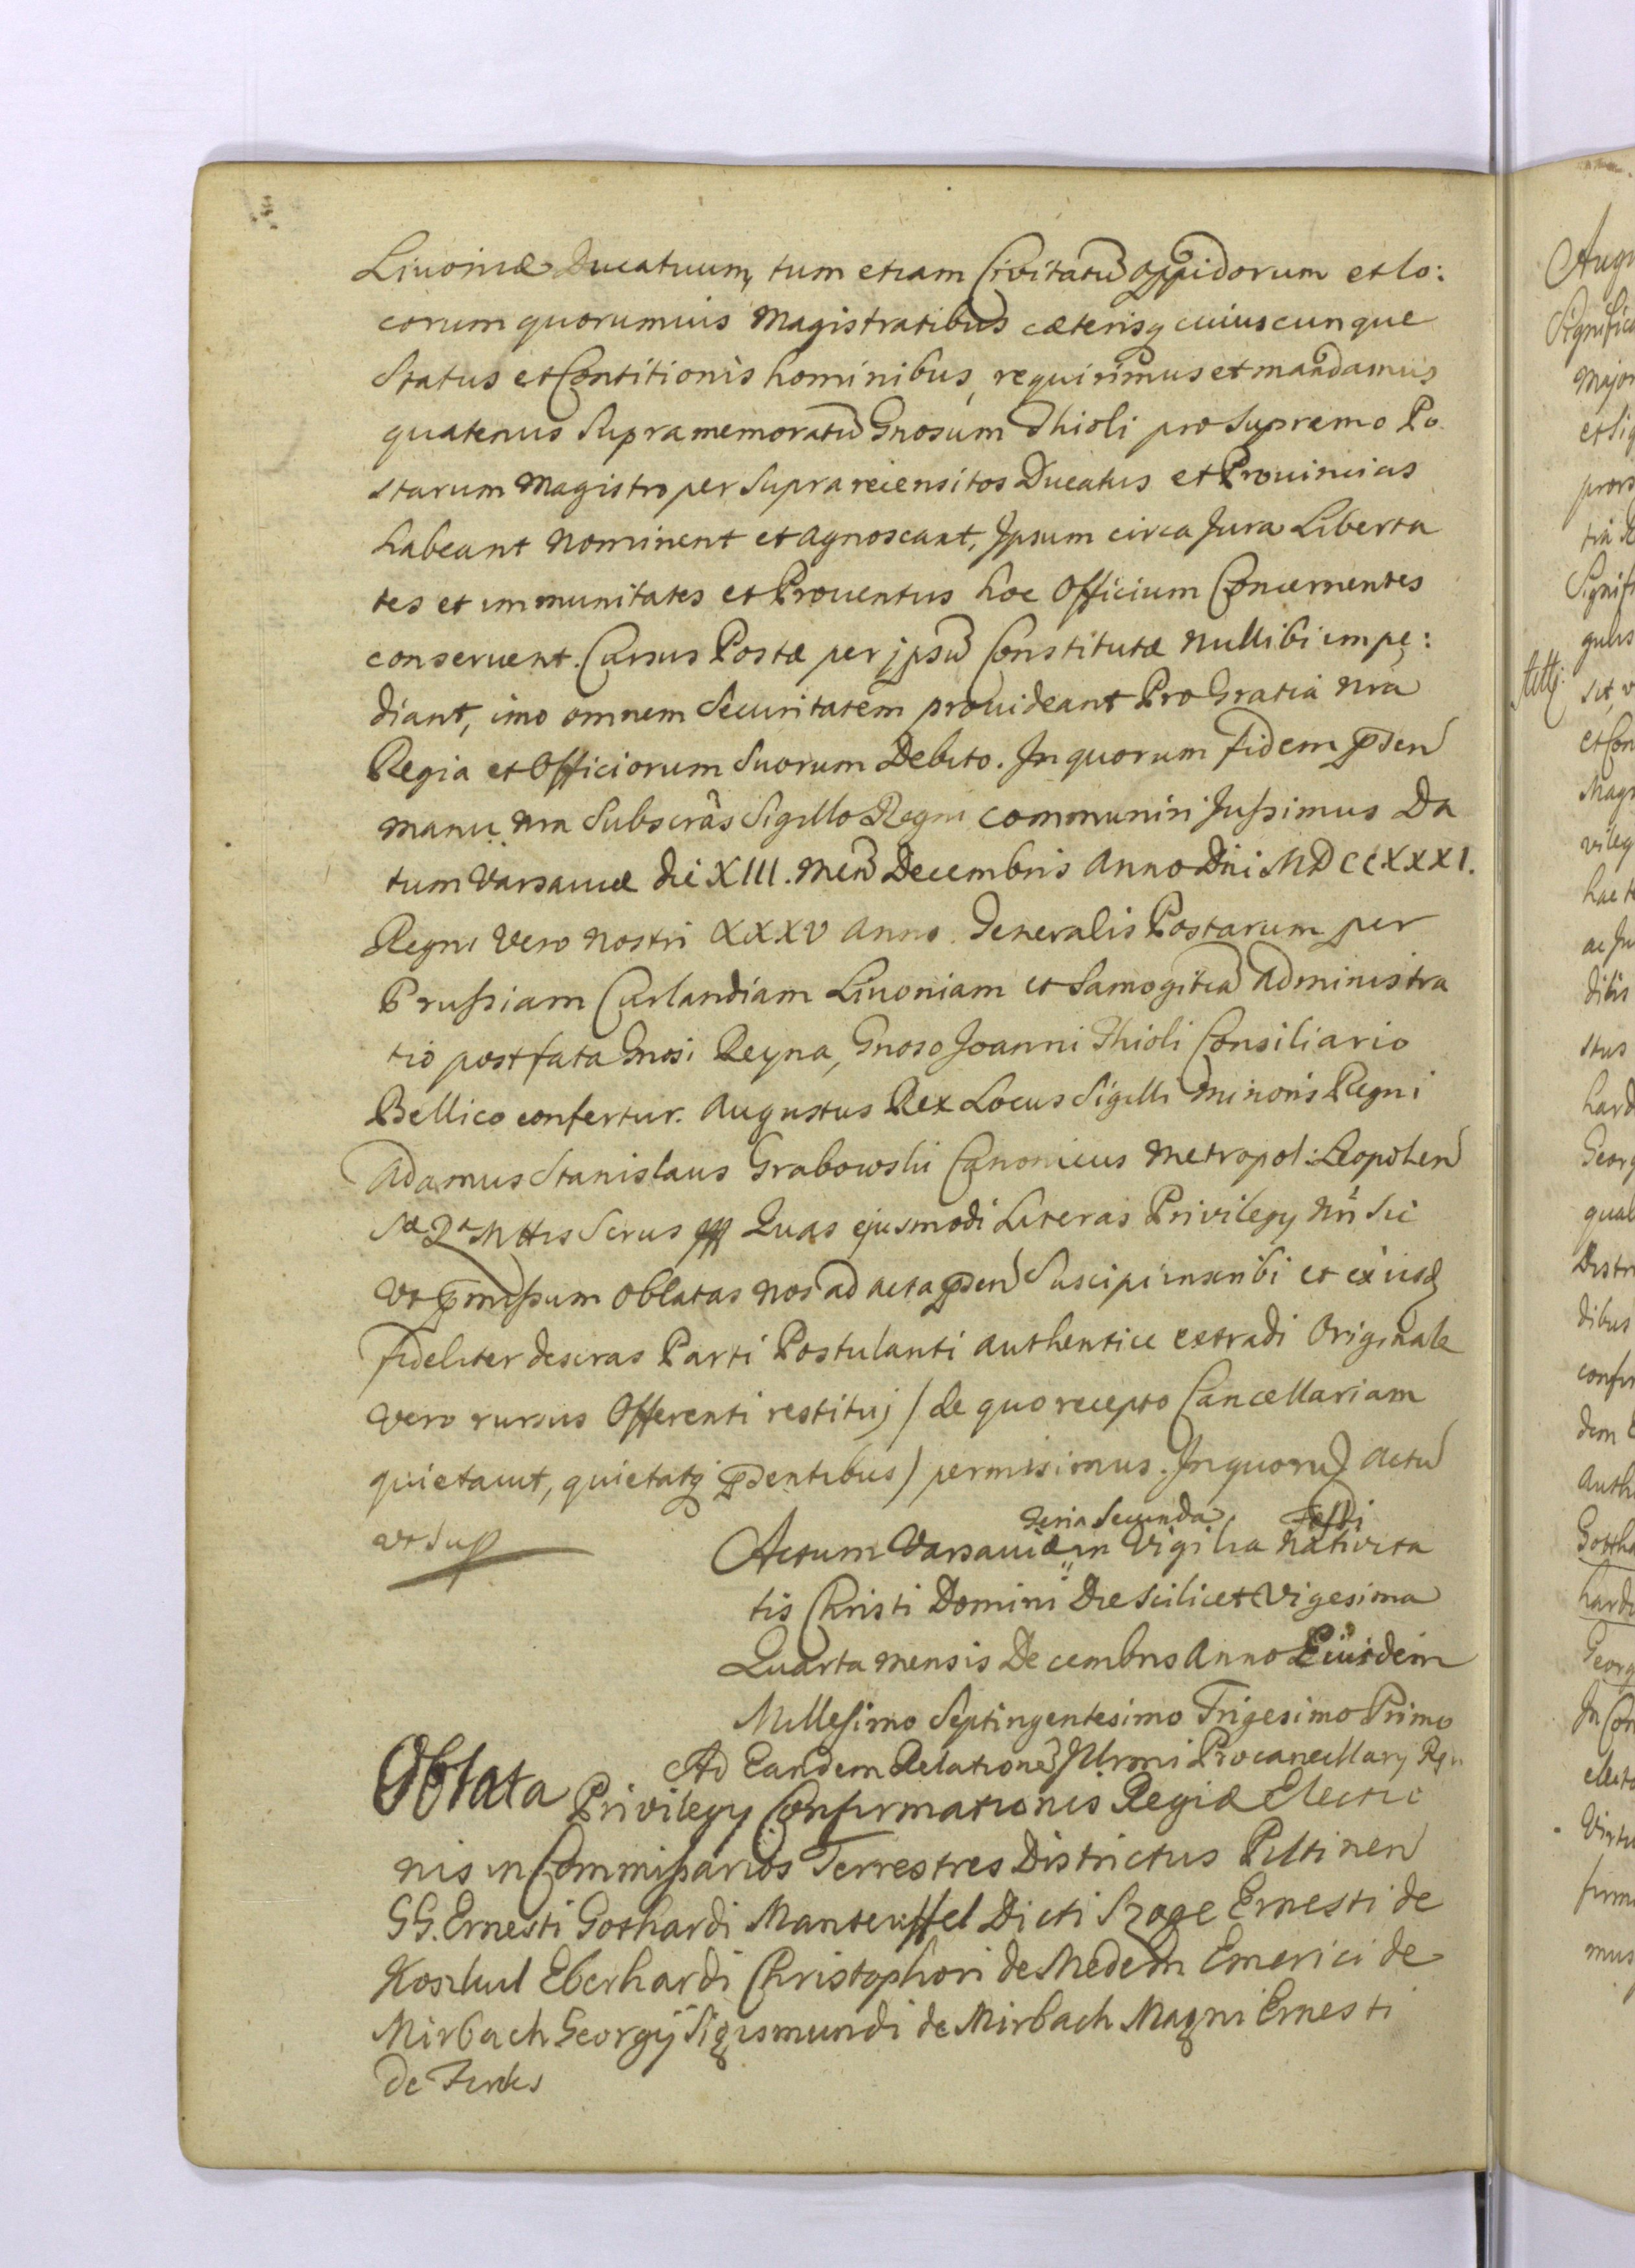 Livoniæ Ducatuum, tum etiam Civitatũ oppidorum et lo:
corum quorumuis Magistratibus cæterisq cuiuscunque
Status et Contitionis hominibus, requirimus et mandamus
quatenus Supramemoratũ Gnosum Thioli pro Supremo Po
starum Magistro per Supra recensitos Ducatus et Prouincias
habeant nominent et agnoscant, Ipsum circa Jura Liberta
tes et immunitates et Prouentus hoc Officium Concernentes
conseruent. Cursus Postæ per jpsũ Constitutæ nullibi impe:
diant, imo omnem Securitatem prouideant Pro Gratia nra
Regia et Officiorum Suorum Debito. In quorum fidem psen
manu nra Subscras Sigillo Regni communiri Jussimus Da
tum Varsauiæ die XIII. Men Decembris Anno Dni MDCCXXXI.
Regni Vero nostri XXXV anno. Generalis Postarum per
Prussiam Curlandiam Liuoniam et Samogitiã Administra
tio post fata Gnosi Reyna, Gnoso Joanni Thioli Consiliario
Bellico confertur. Augustus Rex Locus Sigilli minoris Regni
Adamus Stanislaus Grabowski Canonicus Metropol: Leopolien
Sæ Ræ Mttis Scrus Quas ejusmodi Literas Privilegy nri Sic
Vt pmissum oblatas nos ad acta psen Suscipi inscribi et exijsd
fideliter descras Parti Postulanti authentice extradi Originale
Vero rursus Offerenti restituj / de quo recepto Cancellariam
quietauit, quietatq psentibus / permisimus. In quoru Actu
vt Sup
Feria Secunda Festi
Actum Varsauiæ in Vigilia Natiuita
tis Christi Domini Die scilicet Vigesima
Quarta mensis Decembris Anno Eiusdem
Millesimo Septingentesimo Trigesimo Primo
Ad Eandem Relationẽ Illrmi Procancellary Rgn
Oblata Privilegy Confirmationis Regiæ Electio
nis in Commissarios Terrestres Districtus Piltinen
GG. Ernesti Gothardi Manteuffel Dicti Szoge Ernesti de
Koschul Eberhardi Christophori de Medem Emerici de
Mirbach Georgij Sigismundi de Mirbach Magni Ernesti
de